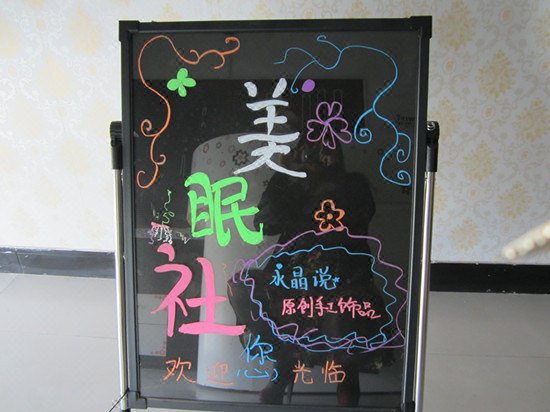 美
眠
社
永晶说
原创手工饰品
欢迎您光临